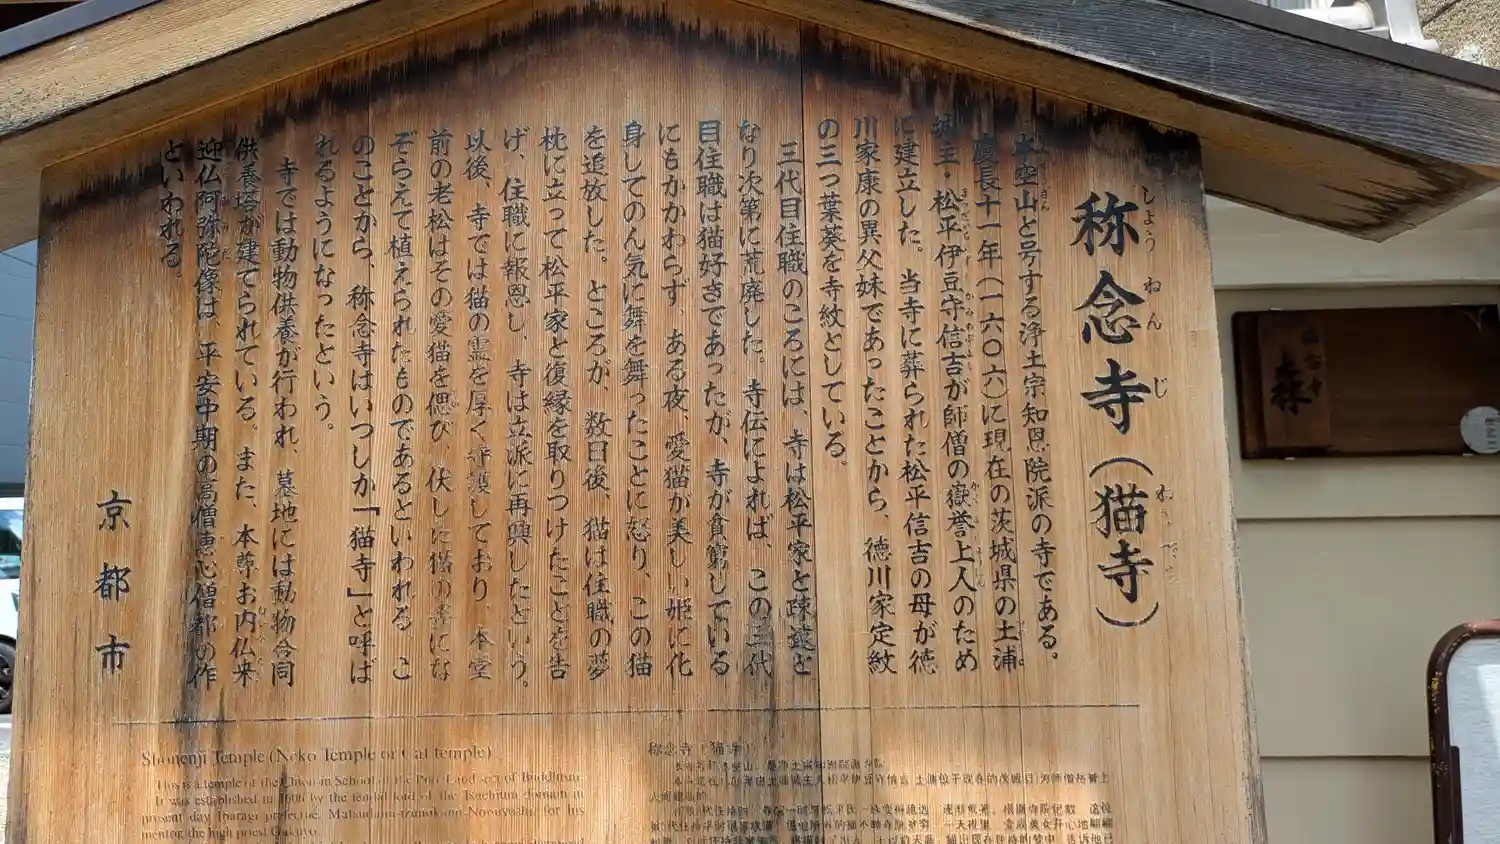 称念寺（猫寺）
しょうねんじ
本空山と号する浄土宗知恩院派の寺である。
慶長十一年（一六〇六）に現在の茨城県の土浦
城主・松平伊豆守信吉が師僧の嶽誉上人のため
に建立した。当寺に葬られた松平信吉の母が徳
川家康の異父妹であったことから、徳川家定紋
の三つ葉葵を寺紋としている。
三代目住職のころには、寺は松平家と疎遠と
なり次第に荒廃した。寺伝によれば、この三代
目住職は猫好きであったが、寺が貧窮している
にもかかわらず、ある夜、愛猫が美しい姫に化
身してのん気に舞を舞ったことに怒り、この猫
を追放した。ところが、数日後、猫は住職の夢
枕に立って松平家と復縁を取りつけたことを告
げ、住職に報恩し、寺は立派に再興したという。
以後、寺では猫の霊を厚く守護しており、本堂
前の老松はその愛猫を偲び、伏した猫の姿にな
ぞらえて植えられたものであるといわれる。こ
のことから、称念寺はいつしか「猫寺」と呼ば
れるようになったという。
寺では動物供養が行われ、墓地には動物合同
供養塔が建てられている。また、本尊お内仏来
迎仏阿弥陀像は、平安中期の高僧恵心僧都の作
といわれる。
京都市
Shonenji Temple (Neko Temple or Cat temple)
This is a temple of the Chion-in School of the Pure Land sect of Buddhism.
It was established in 1606 by the feudal lord of the Tsuchiura domain in
present day Ibaragi prefectie, Matsudaira-izunokami-Nobuyoshi, for his
mentor the high priest Gakuyo.
称念寺（猫寺）
森